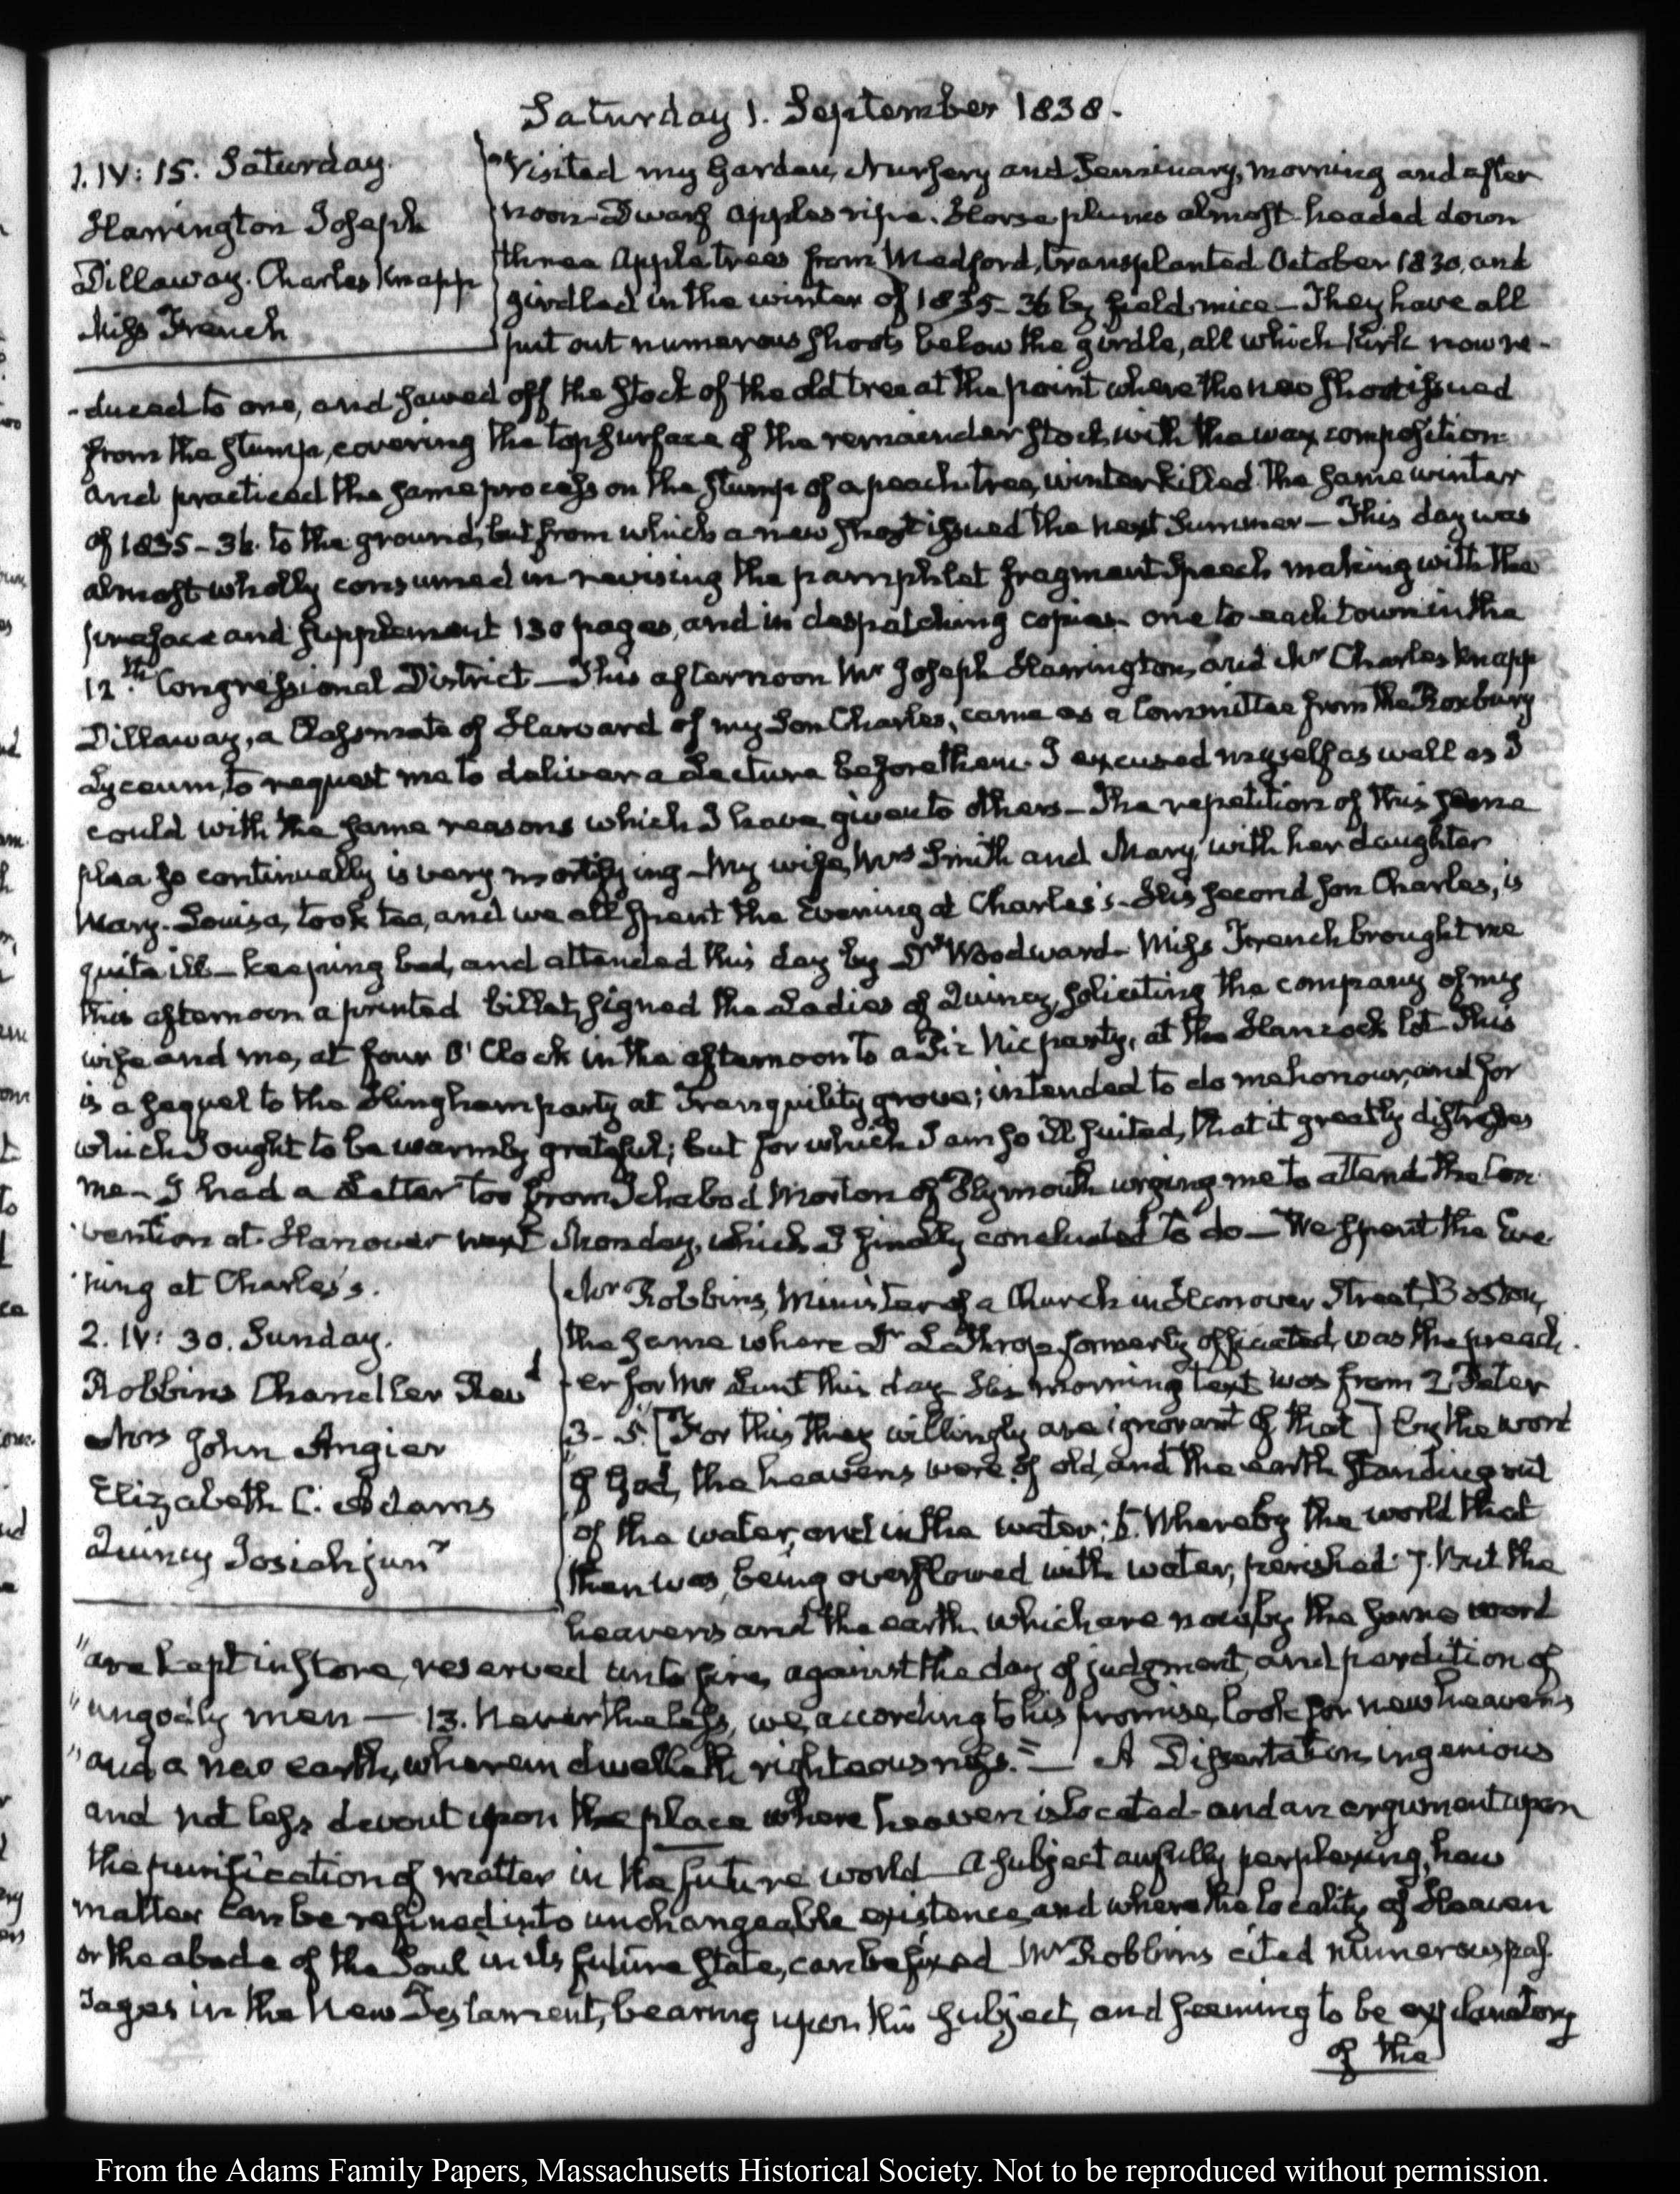 Saturday 1. September 1838.
1. IV: 15. Saturday.
Harrington Joseph
Dillaway. Charles Knapp
Miss French
Visited my Garden, Nursery and Seminary, morning and after
noon. Dwarf apples ripe. Horse plums almost. headed down
three Apple trees from Medford, transplanted October 1830, and
girdled in the winter of 1835-36 by field mice — They have all
put out numerous shoots below the girdle, all which Kirk now re-
-duced to one, and sawed off the stock of the old tree at the point where the new shoot issued
from the stump, covering the top surface of the remainder stock with the wax composition
and practiced the same process on the stump of a peach tree, winter killed the same winter
of 1835-36. to the ground, but from which a new shoot issued the next Summer — This day was
almost wholly consumed in revising the pamphlet fragment Speech making with the
preface and supplement 130 pages, and in despatching copies one to each town in the
12th. Congressional District — This afternoon Mr Joseph Harrington, and Mr Charles Knapp
Dillaway, a Classmate of Harvard of my Son Charles, came as a Committee from the Roxbury
Lyceum, to request me to deliver a Lecture before them. I excused myself as well as I
could with the same reasons which I have given to others — The repetition of this same
plea so continually is very mortifying — My wife, Mrs Smith and Mary, with her daughter
Mary-Louisa, took tea, and we all spent the Evening at Charles's. His second son Charles, is
quite ill — keeping bed, and attended this day by Dr Woodward. Miss French brought me
this afternoon a printed billet, signed the Ladies of Quincy, soliciting the company of my
wife and me, at four O'Clock in the afternoon to a Pic Nic party, at the Hancock lot. This
is a sequel to the Hingham party at Tranquility grove; intended to do me honour, and for
which I ought to be warmly grateful; but for which I am so ill suited, that it greatly distresses
me — I had a Letter too from Ichabod Morton of Plymouth urging me to attend the Con
vention at Hanover next Monday, which I finally concluded to do — We spent the Eve
ning at Charles's.
2. IV: 30. Sunday.
Robbins Chandler Revd
Mrs John Angier
Elizabeth C. Adams
Quincy Josiah junr
Mr Robbins, Minister of a Church in Hanover Street, Boston,
the same where Dr Lathrop formerly officiated, was the preach
-er for Mr Lunt this day His morning text was from 2 Peter
3-5. [For this they willingly are ignorant of that] by the word
of God, the heavens were of old, and the earth standing out
of the water, and in the water; 6. Whereby the world that
then was, being overflowed with water, perished: 7. But the
heavens and the earth, which are now, by the same word
"are kept in store, reserved unto fire, against the day of judgment, and perdition of
"ungodly men — 13. Nevertheless, we, according to his promise, look for new heavens
"and a new earth, wherein dwelleth righteousness." — A Dissertation, ingenious
and not less devout upon the place where heaven is located and an argument upon
the purification of matter in the future world — A subject awfully perplexing, how
matter can be refined into unchangeable existence, and where the locality of Heaven
or the abode of the Soul in its future State, can be fixed Mr Robbins cited numerous pas
sages in the New Testament, bearing upon this subject, and seeming to be explanatory
of the
From the Adams Family Papers, Massachusetts Historical Society. Not to be reproduced without permission.